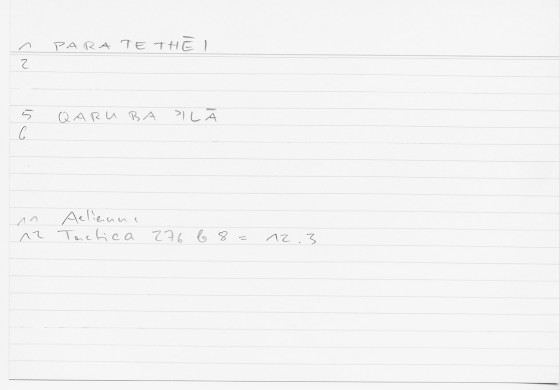 1 PARATETHĒ I
2
5 QARUBA ʾILĀ
6
11 Aelianus
12 Tactica 276 b 8 = 12.3